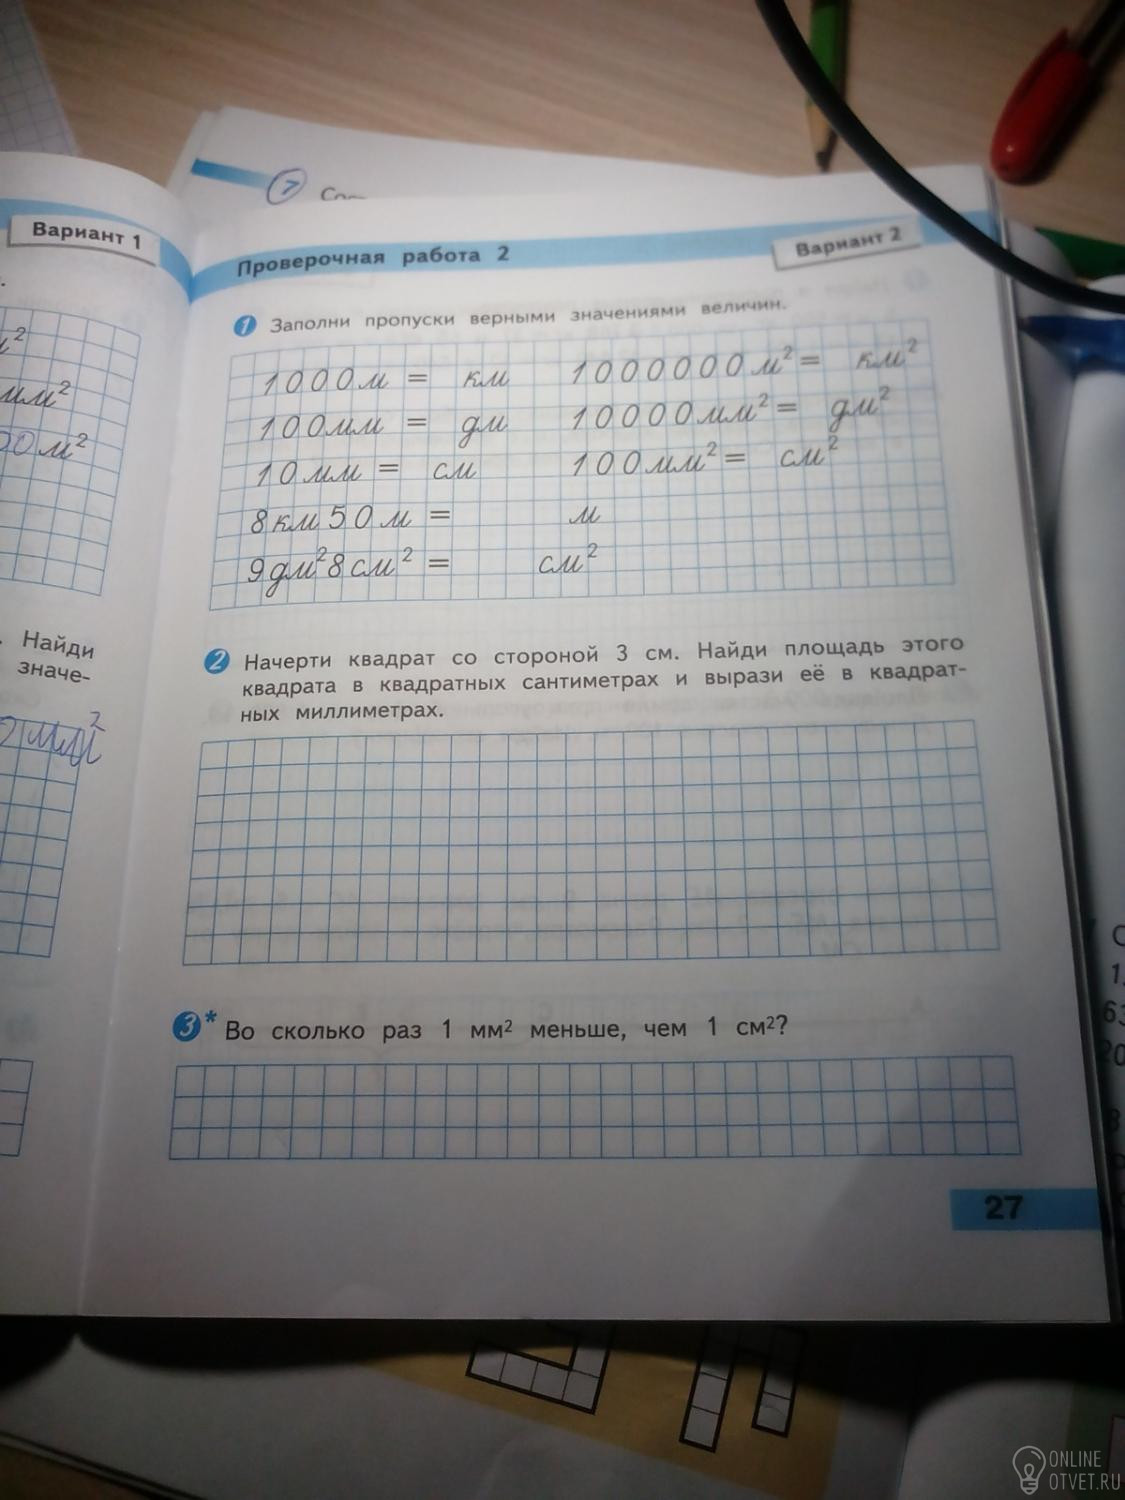 7
Вариант 1
Проверочная работа 2
Вариант 2
1 Заполни пропуски верными значениями величин.
1000м = км 1000000м² = км²
100мм = дм 10000мм² = дм²
10мм = см 100мм² = см²
8км50м = м
9дм²8см² = см²
2 Начерти квадрат со стороной 3 см. Найди площадь этого
квадрата в квадратных сантиметрах и вырази её в квадрат-
ных миллиметрах.
3* Во сколько раз 1 мм² меньше, чем 1 см²?
27
мм²
м²
Найди
значе-
мм²
ONLINE
OTVET.RU